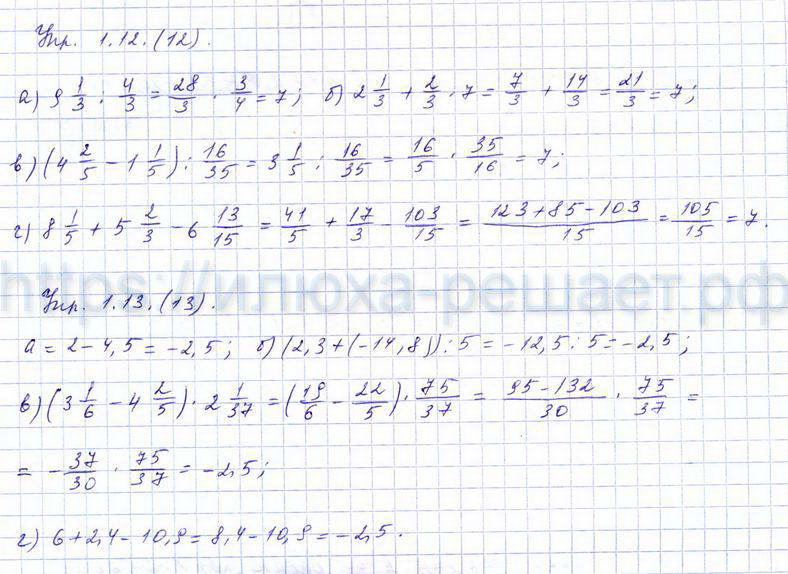 Упр. 1.12.(12).
а) 9 1/3 : 4/3 = 28/3 · 3/4 = 7; б) 2 1/3 + 2/3 · 7 = 7/3 + 14/3 = 21/3 = 7;
в) (4 2/5 − 1 1/5) : 16/35 = 3 1/5 : 16/35 = 16/5 · 35/16 = 7;
г) 8 1/5 + 5 2/3 − 6 13/15 = 41/5 + 17/3 − 103/15 = (123+85−103)/15 = 105/15 = 7.
https://илюха-решает.рф
Упр. 1.13.(13).
а = 2 − 4,5 = −2,5; б) (2,3+(−14,8)) : 5 = −12,5 : 5 = −2,5;
в) (3 1/6 − 4 2/5) · 2 1/37 = (19/6 − 22/5) · 75/37 = (95−132)/30 · 75/37 =
= −37/30 · 75/37 = −2,5;
г) 6+2,4−10,9 = 8,4−10,9 = −2,5.